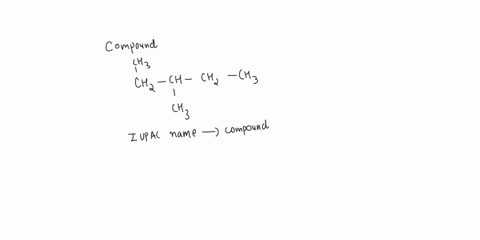 Compound
CH3
CH2 – CH – CH2 – CH3
CH3
IUPAC name → compound